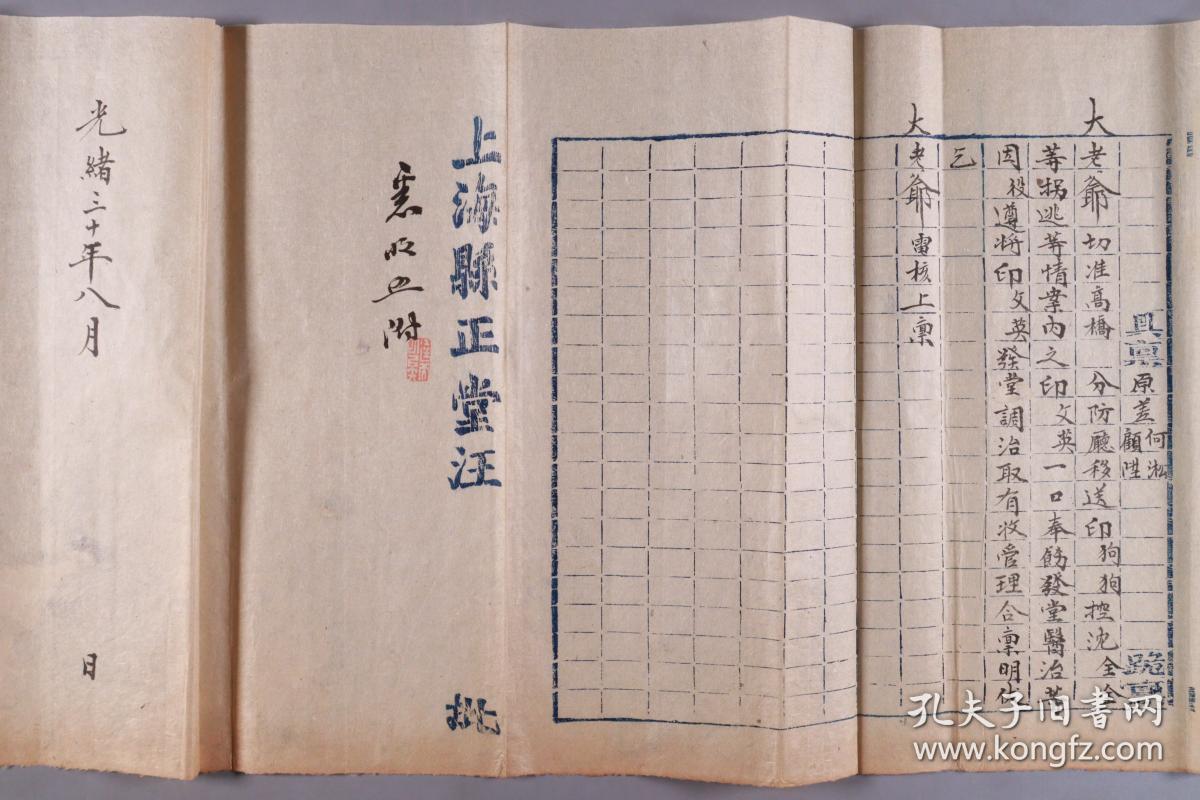 具稟 原差 何淞 顧陞 跪稟
大老爺切准高橋 分防廳移送印狗狗控沈全全
等拐逃等情案內之印文英一口奉飭發堂醫治等
因役遵將印文英發堂調治取有收管理合稟明伏
乞
大老爺電核上稟
上海縣正堂汪 批
悉收照附
光緒三十年八月 日
孔夫子旧书网
www.kongfz.com